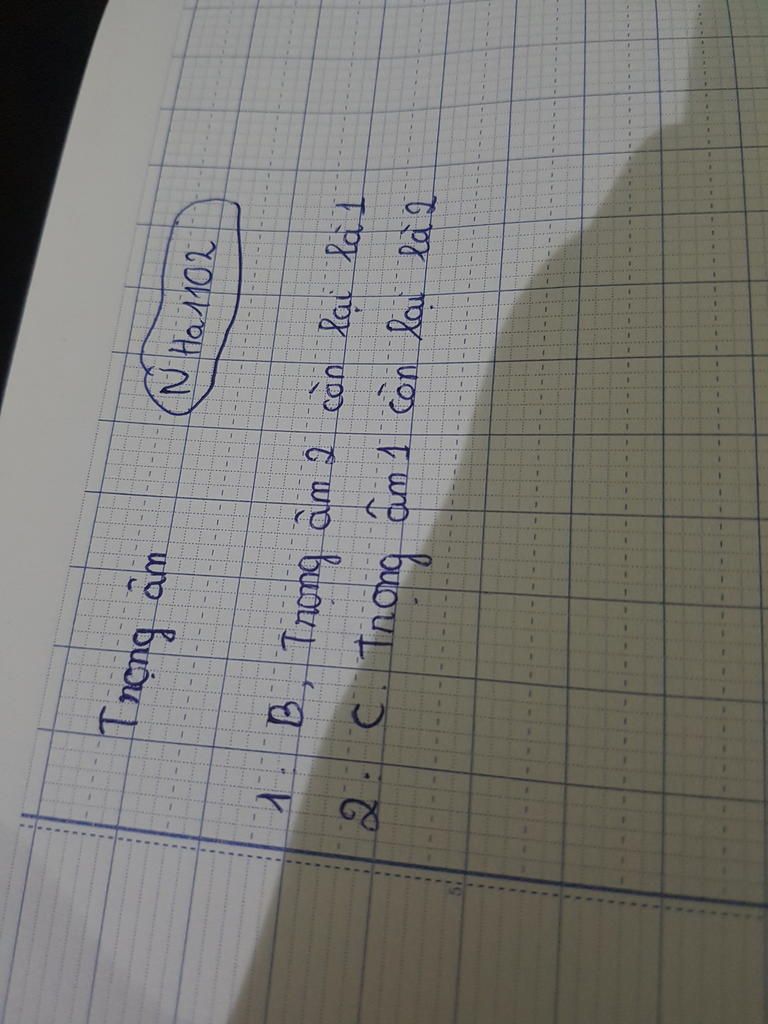 Trọng âm
N Ha1102
1. B, Trọng âm 2 còn lại là 1
2. C. Trọng âm 1 còn lại là 2
5